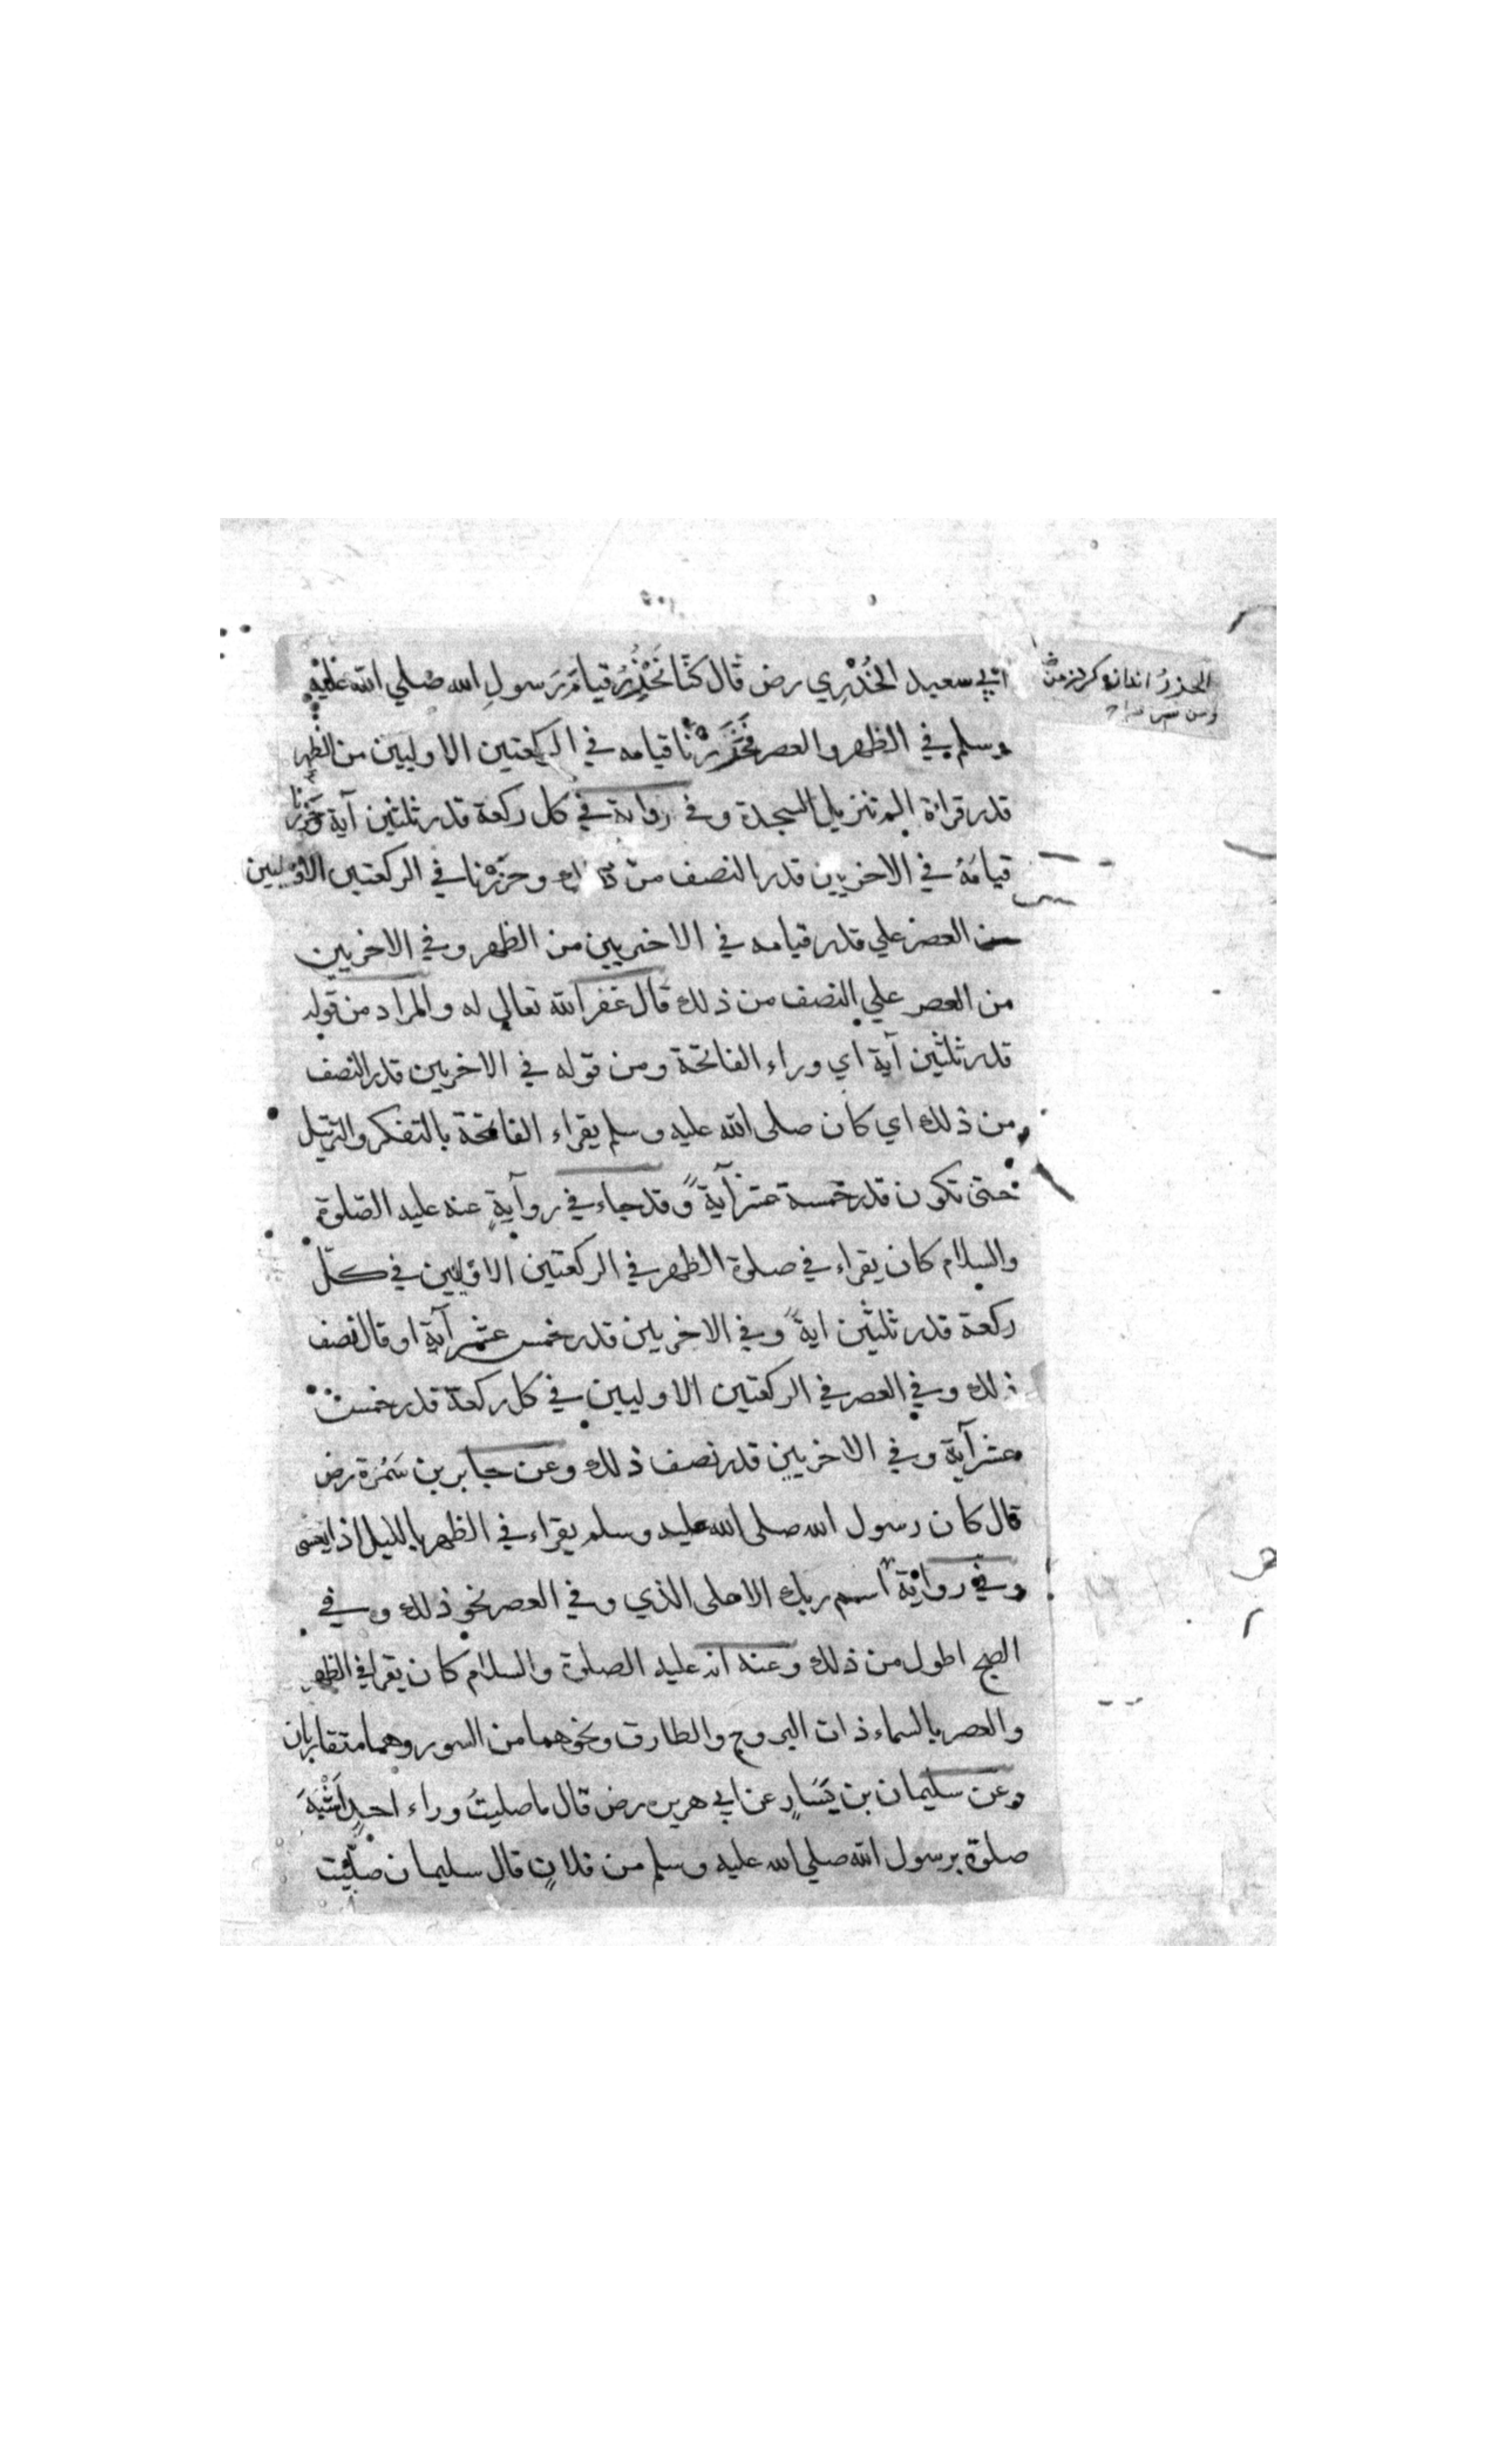 ابي سعيد الخُدْرِي رض قال كنّا نَحْذُرُ قيامَ رَسولِ الله صلي الله عليه
وسلم في الظهر والعصر فَحَذَرْنا قيامه في الركعتين الاوليين من الظهر
قدر قراءة الم تنزيل السجدة وفي رواية في كل ركعة قدر ثلثين آية وحَزَرْنا
قيامَهُ في الاخريين قدر النصف من ذلك وحزرْنا في الركعتين الاوليين
من العصر علي قدر قيامه في الاخريين من الظهر وفي الاخريين
من العصر علي النصف من ذلك قال غفر الله تعالي له والمراد من قوله
قدر ثلثين آية اي وراء الفاتحة ومن قوله في الاخريين قدر النصف
من ذلك اي كان صلى الله عليه وسلم يقراء الفاتحة بالتفكر والترتيل
حتى تكون قدر خمسة عشر آيةً وقد جاء في روآيةٍ عنه عليه الصلوة
والسلام كان يقراء في صلوة الظهر في الركعتين الاوليين في كلّ
ركعة قدر ثلثين ايةً وفي الاخريين قدر خمس عشر آية او قال نصف
ذلك وفي العصر في الركعتين الاوليين في كل ركعة قدر خمست
عشر آية وفي الاخريين قدر نصف ذلك وعن جابر بن سَمُرَة رض
قال كان رسول الله صلى الله عليه وسلم يقراء في الظهر بالليل اذا يغشى
وفي رواية اسم ربك الاعلى الذي وفي العصر نحو ذلك وفي
الصبح اطول من ذلك وعنه انه عليه الصلوة والسلام كان يقرا في الظهر
والعصر بالسماء ذات البروج والطارق ونحوهما من السور وهما متقاربان
وعن سليمان بن يَسَارٍ عن ابي هريره رض قال ما صليتُ وراء احدٍ اَشْبَهَ
صلوة برسول الله صلي الله عليه وسلم من فلانٍ قال سليمان صلّيت
الحذرُ اندازه كردن